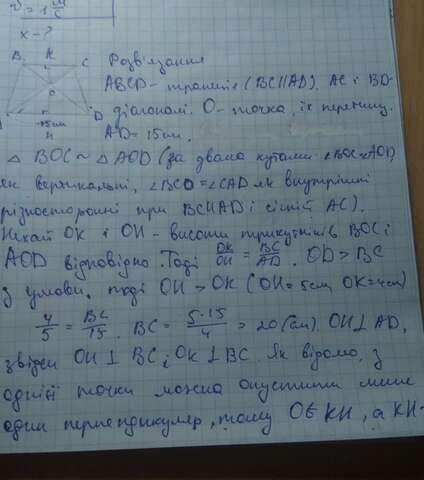 v = 1 м/с
x - ?
B K C
O
D
15см
H
Розв'язання
ABCD - трапеція (BC||AD). AC і BD-
діагоналі. O - точка їх перетину.
AD = 15см.
△ BOC ~ △ AOD (за двома кутами: ∠BOC=∠AOD
як вертикальні, ∠BCO = ∠CAD як внутрішні
різносторонні при BC||AD і січній AC).
Нехай OK і OH - висоти трикутників BOC і
AOD відповідно. Тоді OK/OH = BC/AD. OD > BC
з умови, тоді OH > OK (OH = 5см, OK = 4см)
4/5 = BC/15. BC = 5·15/4 = 20 (см). OH⊥AD,
звідси OH ⊥ BC; OK ⊥ BC. Як відомо, з
однієї точки можна опустити лише
один перпендикуляр, тому O∈ KH, а KH-